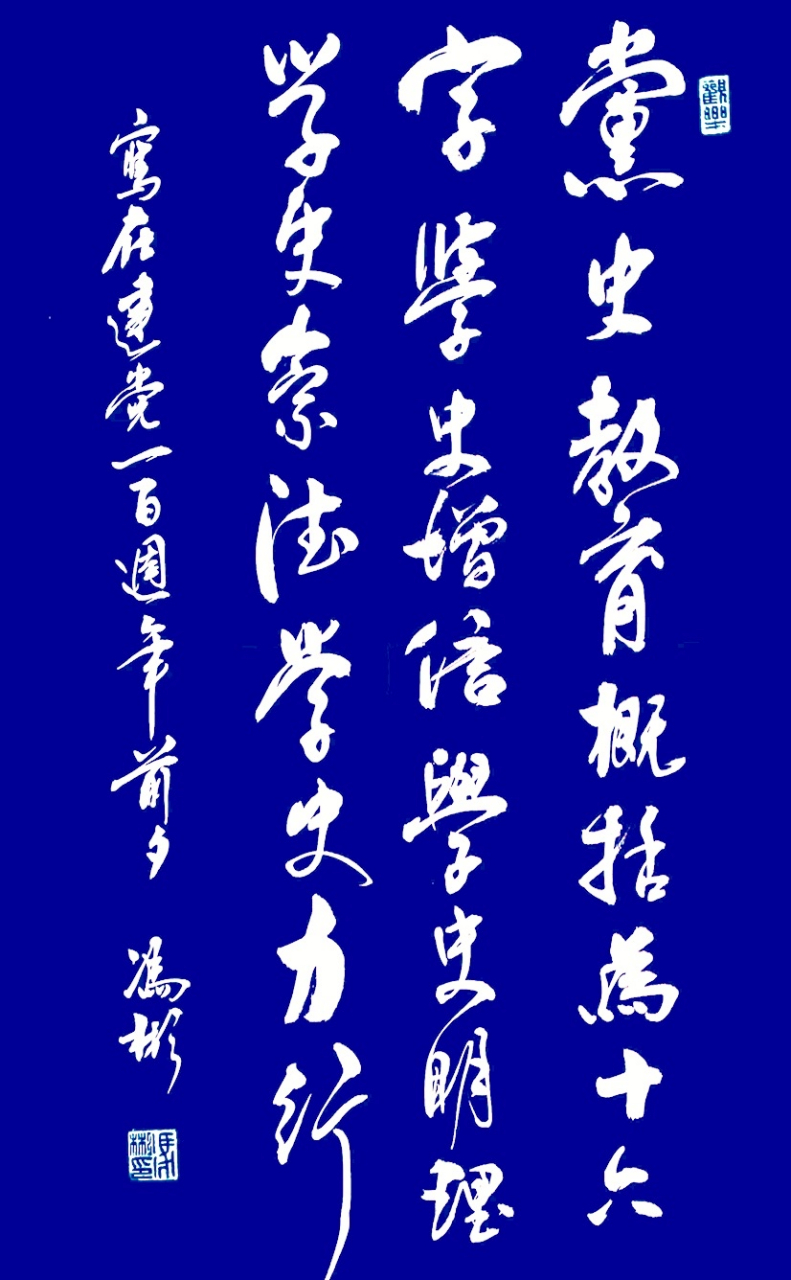 黨史教育概括為十六
字學史增信學史明理
学史崇德学史力行
寫在建党一百週年前夕 馮彬